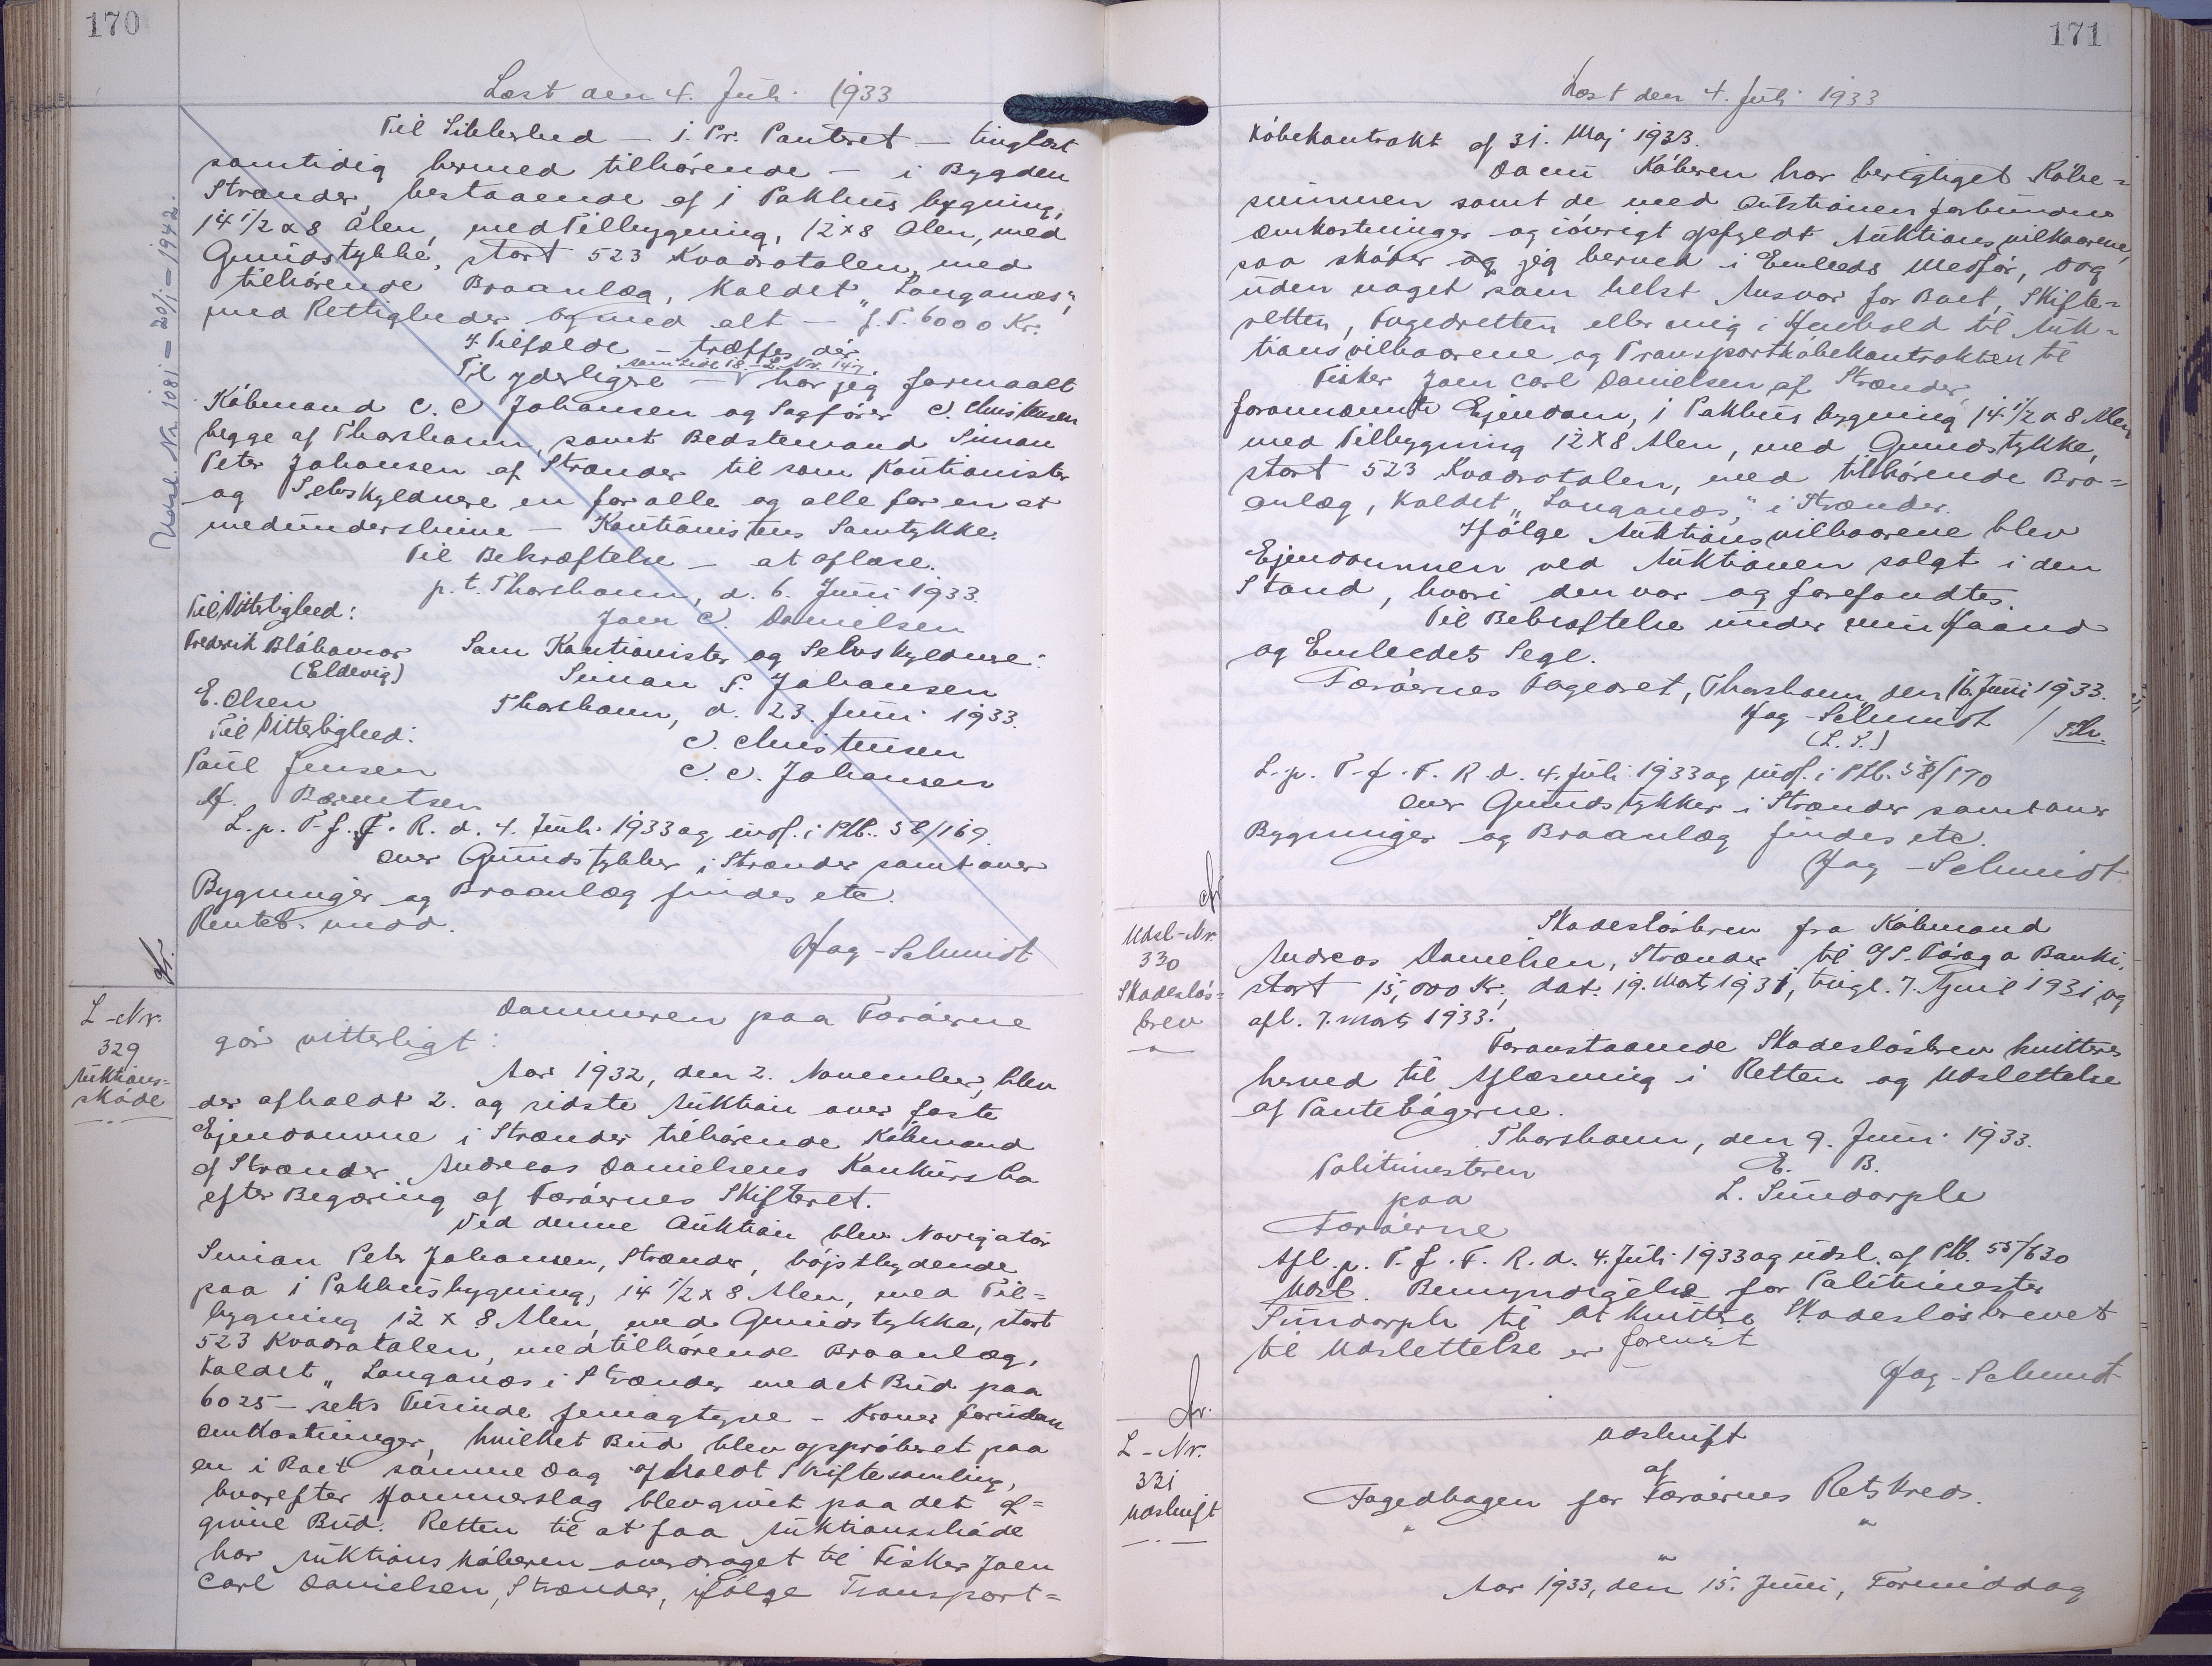 170
Læst den 4. Juli 1933
Til Sikkerhed - 1. Pr. Panteret - tinglæst
samtidig hermed tilhørende - i Bygden
Strænder, bestaaende af 1 Pakhusbygning,
14 1/2 x 8 Alen, med Tilbygning, 12 x 8 Alen, med
Grundstykke, stort 523 Kvadratalen, med
tilhørende Broanlæg, kaldet "Langanæs",
med Rettigheder og med alt - f. T. 6000 Kr.
I Tilfælde - træffes dér.
som Side 18. L. Nr. 147.
Til yderligere - har jeg formaaet
Købmand C. C. Johansen og Sagfører C. Christensen
begge af Thorshavn, samt Bedstemand Simon
Peter Johansen af Strænder til som Kautionister
og Selvskyldnere en for alle og alle for en at
medunderskrive - Kautionistens Samtykke.
Til Bekræftelse - at aflæse.
p. t. Thorshavn, d. 6. Juni 1933.
Til Vitterlighed:
Joen C. Danielsen
Frederik Bláhamar
(Eldevig)
Som Kautionister og Selvskyldnere:
Simon P. Johansen
E. Olsen
Thorshavn, d. 23. Juni 1933.
Til Vitterlighed:
C. Christensen
Paul Jensen
C. C. Johansen
Berentsen
L. p. T. f. F. R. d. 4. Juli 1933 og indf. i Ptb. 58/169.
over Grundstykker i Strænder samt over
Bygninger og Broanlæg findes etc.
Renteb. medd.
Hag-Schmidt
Udsl. Nr. 1081 - 20/1 - 1942.
L-Nr.
329
Auktions=
skøde
Dommeren paa Færøerne
gør vitterligt:
Aar 1932, den 2. November, blev
der afholdt 2. og sidste Auktion over faste
Ejendomme i Strænder tilhørende Købmand
af Strænder Andreas Danielsens Konkursbo
efter Begæring af Færøernes Skifteret.
Ved denne Auktion blev Navigatør
Simon Peter Johansen, Strænder, højstbydende
paa 1 Pakhusbygning, 14 1/2 x 8 Alen, med Til=
bygning 12 x 8 Alen, med Grundstykke, stort
523 Kvadratalen, med tilhørende Broanlæg,
kaldet "Langanæs i Strænder med et Bud paa
6025 - seks Tusinde femogtyve - Kroner foruden
Omkostninger, hvilket Bud blev approberet paa
en i Boet samme Dag afholdt Skiftesamling,
hvorefter Hammerslag blev givet paa det af=
givne Bud. Retten til at faa Auktionsskøde
har Auktionskøberen overdraget til Fisker Joen
Carl Danielsen, Strænder, ifølge Transport=
171
Læst den 4. Juli 1933
købekontrakt af 31. Maj 1933.
Da nu Køberen har berigtiget Købe=
summen samt de med Auktionen forbundne
Omkostninger og iøvrigt opfyldt Auktionsvilkaarene,
saa skøder og jeg herved i Embeds Medfør, dog
uden noget som helst Ansvar for Boet, Skifte=
retten, Fogedretten eller mig i Henhold til Auk=
tionsvilkaarene og Transportkøbekontrakten til
Fisker Joen Carl Danielsen af Strænder
forannævnte Ejendom, 1 Pakhusbygning 14 1/2 x 8 Alen
med Tilbygning 12 x 8 Alen, med Grundstykke,
stort 523 Kvadratalen, med tilhørende Bro=
anlæg, kaldet "Langanæs," i Strænder.
Ifølge Auktionsvilkaarene blev
Ejendommen ved Auktionen solgt i den
Stand, hvori den var og forefandtes.
Til Bekræftelse under min Haand
og Embedets Segl.
Færøernes Fogedret, Thorshavn, den 16. Juni 1933.
Hag-Schmidt
(L. S.)
L. p. T. f. F. R. d. 4. Juli 1933 og indf. i Ptb. 58/170
over Grundstykker i Strænder samt over
Bygninger og Broanlæg findes etc.
Hag-Schmidt
Udsl-Nr.
330
Skadesløs=
brev
Skadesløsbrev fra Købmand
Andreas Danielsen, Strænder, til A/S. Føroya Banki,
stort 15,000 Kr., dat. 19. Marts 1931, tingl. 7. April 1931 og
afl. 7. Marts 1933.
Foranstaaende Skadesløsbrev kvitteres
herved til Aflæsning i Retten og Udslettelse
af Pantebøgerne.
Thorshavn, den 9. Juni 1933.
Politimesteren
E. B.
paa
L. Sundorph
Færøerne
Afl. p. T. f. F. R. d. 4. Juli 1933 og udsl. af Ptb. 55/630
Udst. Bemyndigelse for Politimester
Sundorph til at kvittere Skadesløsbrevet
til Udslettelse er forevist
Hag-Schmidt
L-Nr.
331
Udskrift
Udskrift
af
Fogedbogen for Færøernes Retskreds.
Aar 1933, den 15. Juni, Formiddag